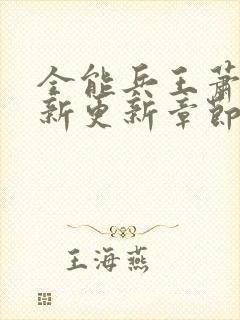 全能兵王萧
新更新章節
王海燕